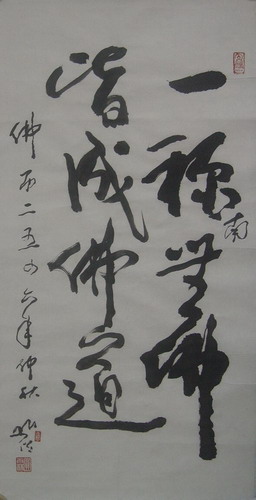 一称南無佛
皆成佛道
佛曆二五四六年仲秋